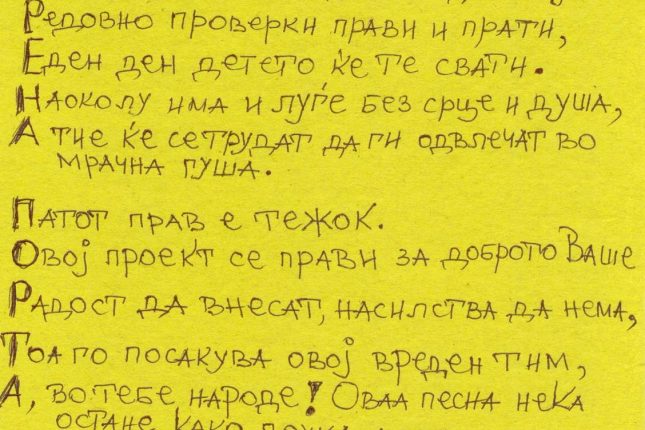 Редовно проверки прави и прати,
Еден ден детето ќе те свати.
Наоколу има и луѓе без срце и душа,
А тие ќе се трудат да ги одвлечат во
мрачна гуша.
Патот прав е тежок.
Овој проект се прави за доброто Ваше
Радост да внесат, насилства да нема,
Тоа го посакува овој вреден тим,
А, во тебе народе! Оваа песна нека
остане како